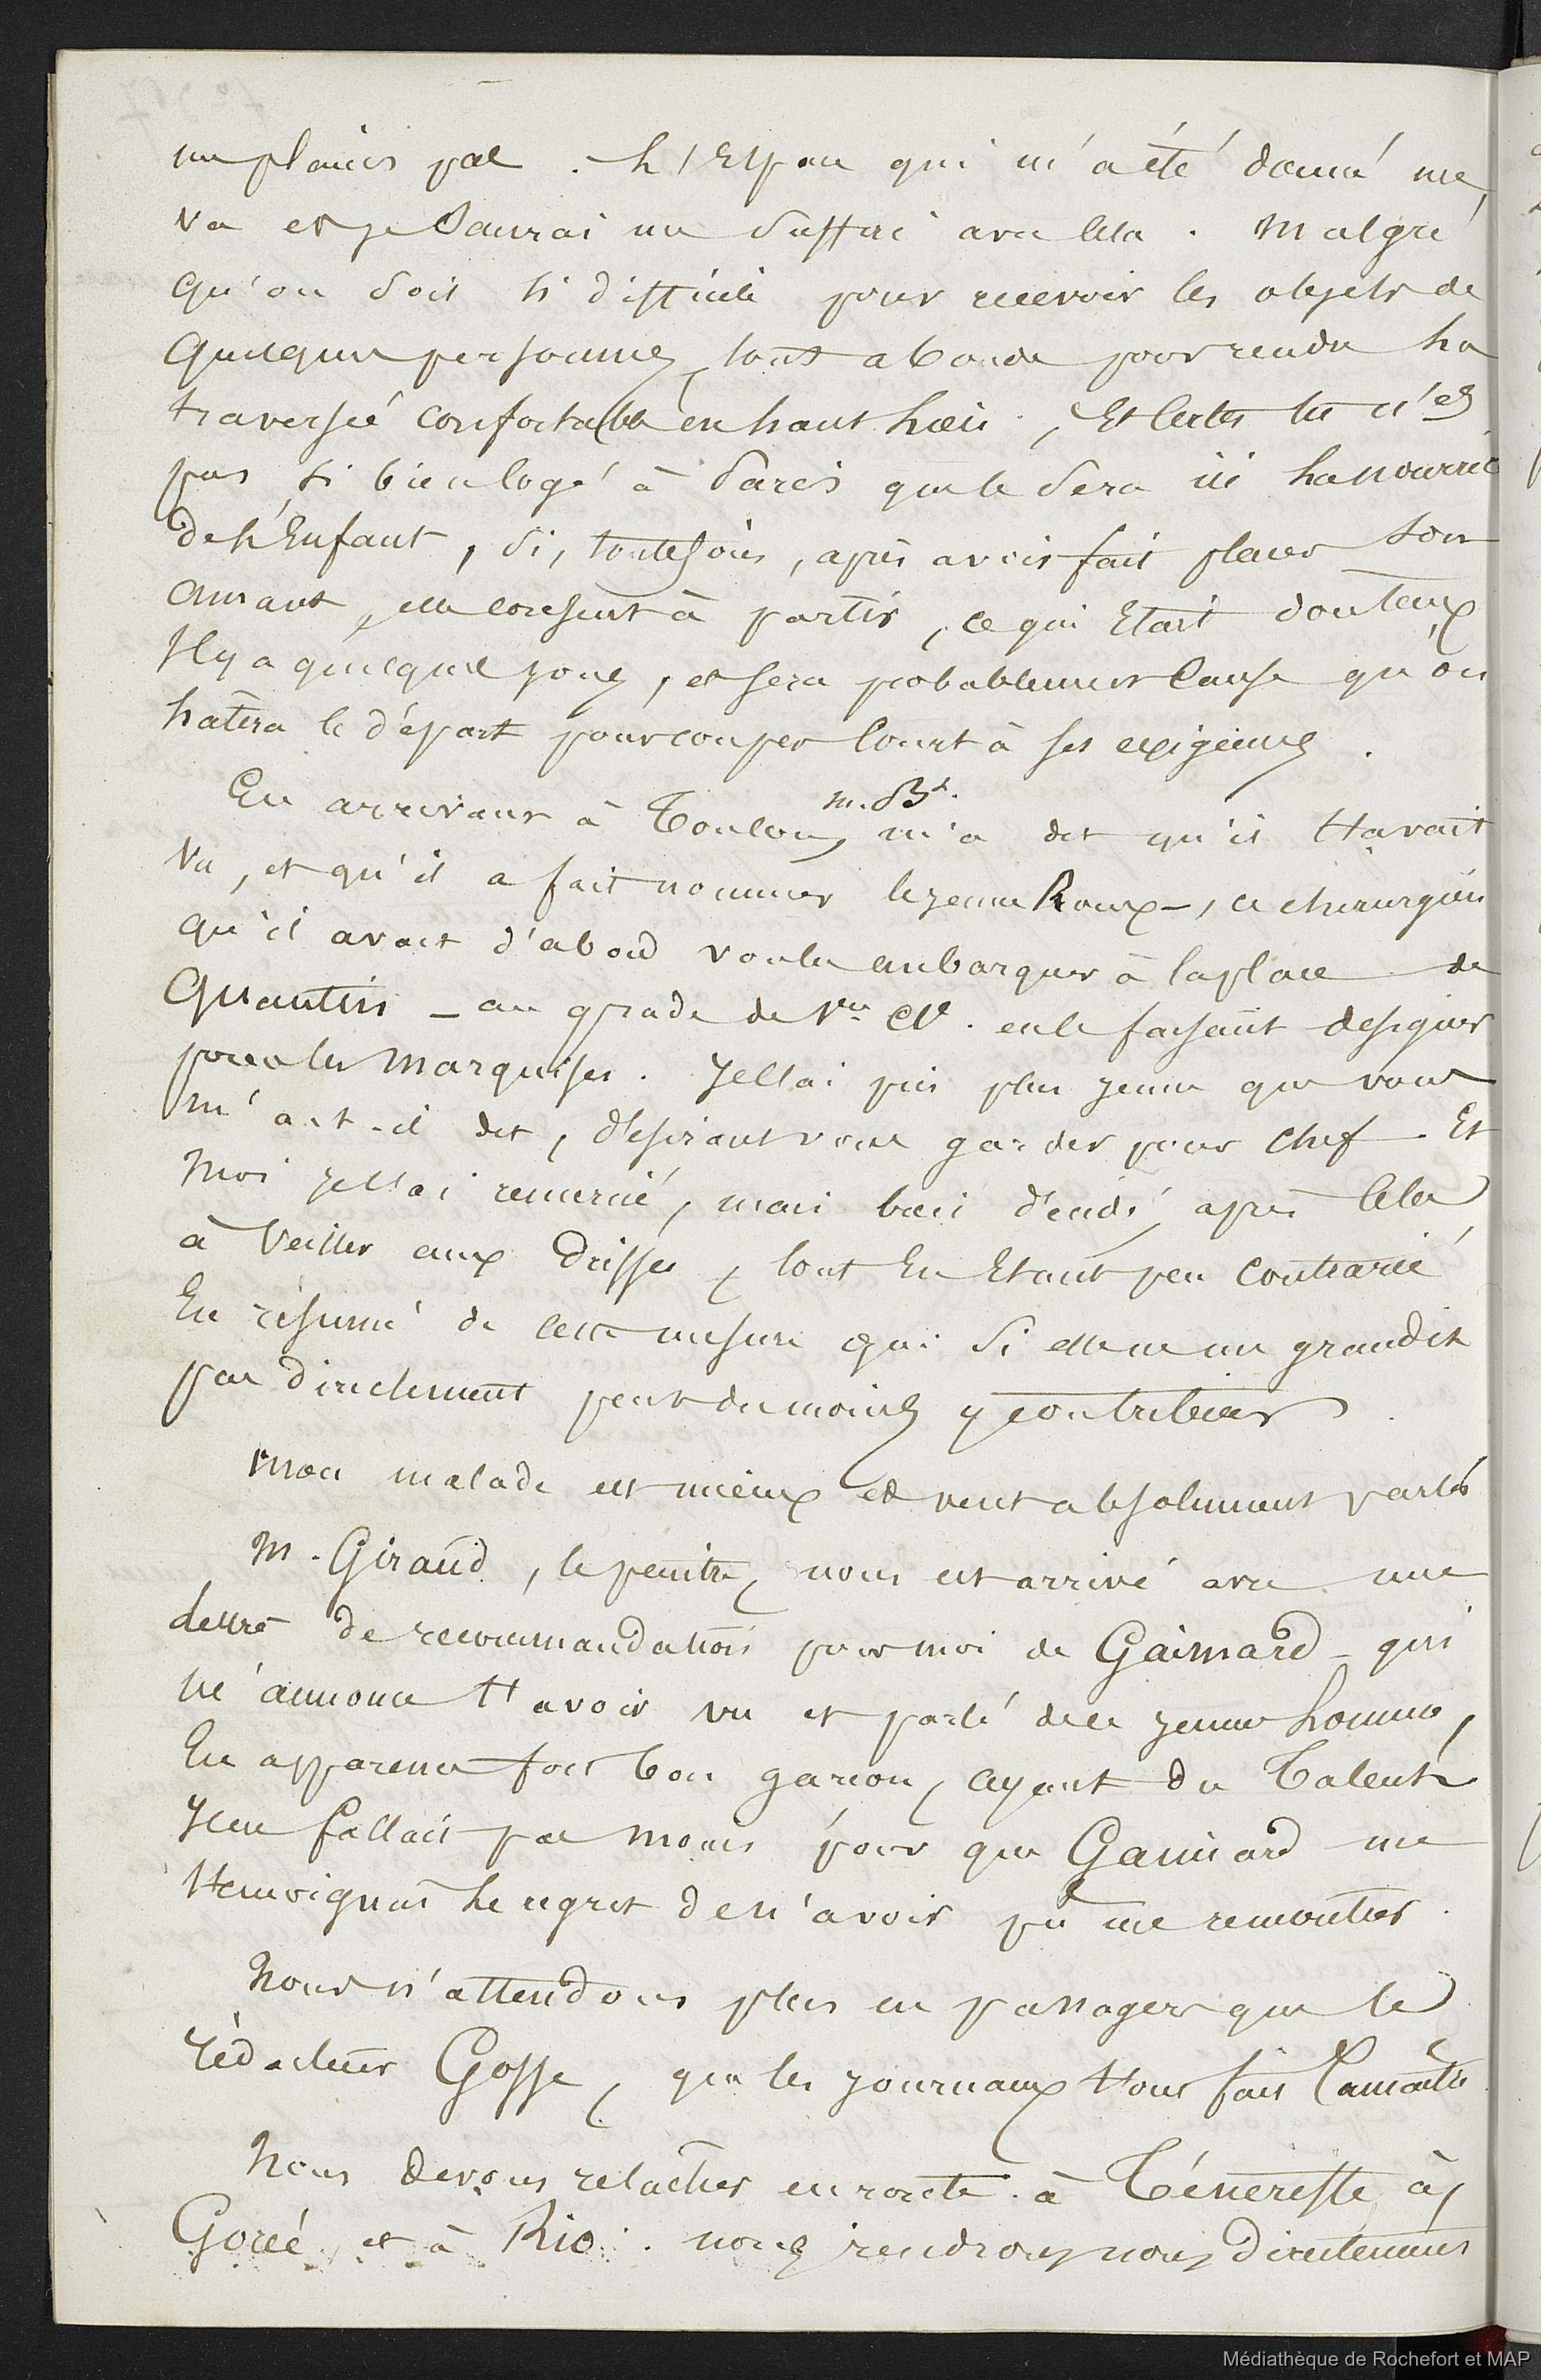 me plains pas. L'Espace qui m'a été donné me
va et je saurai me suffire avec cela. Malgré
qu'on soit si difficile pour recevoir les objets de
quelques personnes, tout abonde pour rendre la
traversée confortable en haut lieu, Et certes tu n'es
pas si bien logé à Paris que le sera ici la nourrice
de l'Enfant, si, toutefois, après avoir fait placer son
amant, elle consent à partir, ce qui Etait douteux
Il y a quelques jours, et sera probablement Cause qu'on
hatera le départ pour couper Court à ses exigences.
En arrivant à Toulon, m. Bt. m'a dit qu'il t'avait
vu, et qu'il a fait nommer le jeune Roux -, ce chirurgien
qu'il avait d'abord voulu embarquer à la place de
Quantin - au grade de en le faisant designer
pour les Marquises. Je l'ai pris plus jeune que vous
m'a-t-il dit, désirant vous garder pour chef. Et
moi je l'ai remercié, mais bien décidé, après cela,
à veiller aux Drisses, tout En Etant peu contrarié
En résumé de cette mesure qui si elle ne me grandit
pas directement peut du moins y contribuer.
Mon malade est mieux et veut absolument partir
M. Giraud, le peintre, nous est arrivé avec une
lettre de recommandation pour moi de Gaimard - qui
m'annonce t'avoir vu et parlé de ce jeune homme,
En apparence fort bon garcon, ayant du Talent.
Il ne fallait pas moins pour que Gaimard me
témoignat le regret de n'avoir pu me rencontrer.
Nous n'attendons plus en passager que le
rédacteur Gosse, que les journaux t'ont fait Connaitre
Nous devons relacher en route à Téneriffe, à
Gorée, et à Rio. nous rendrons nous directement
Médiathèque de Rochefort et MAP